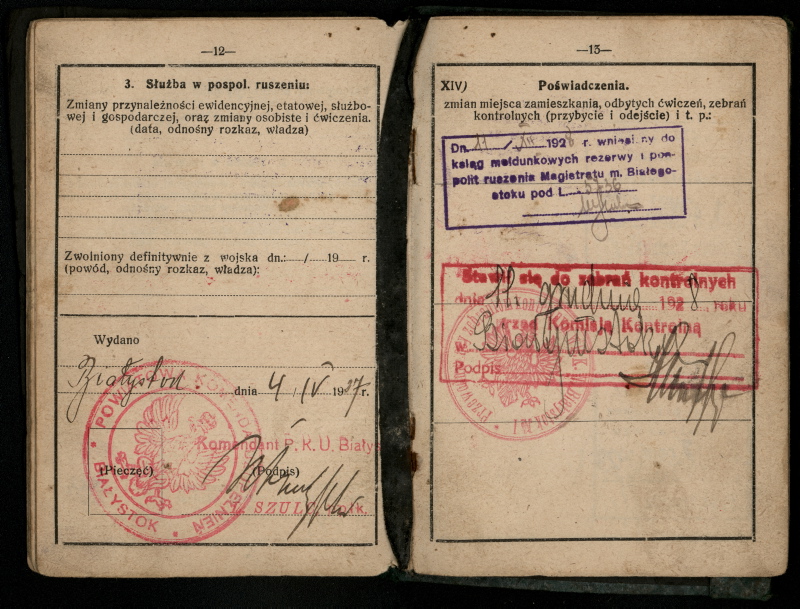 —12—
3. Służba w pospol. ruszeniu:
Zmiany przynależności ewidencyjnej, etatowej, służbo-
wej i gospodarczej, oraz zmiany osobiste i ćwiczenia.
(data, odnośny rozkaz, władza)
Zwolniony definitywnie z wojska dn.: / 19 r.
(powód, odnośny rozkaz, władza):
Wydano
Białystok dnia 4 / IV 1927 r.
POWIATOWA KOMENDA UZUPEŁNIEŃ
BIAŁYSTOK
Komendant P. K. U. Białys
(Pieczęć) (Podpis)
SZULC
—13—
XIV) Poświadczenia.
zmian miejsca zamieszkania, odbytych ćwiczeń, zebrań
kontrolnych (przybycie i odejście) i t. p.:
Dn. 11 / XII 1928 r. wniesiony do
ksiąg meldunkowych rezerwy i pos-
polit ruszenia Magistratu m. Białego-
stoku pod L.
Stawił się do zebrań kontrolnych
dnia 11 grudnia 1928 roku
przed Komisją Kontrolną
w Białymstoku
Podpis